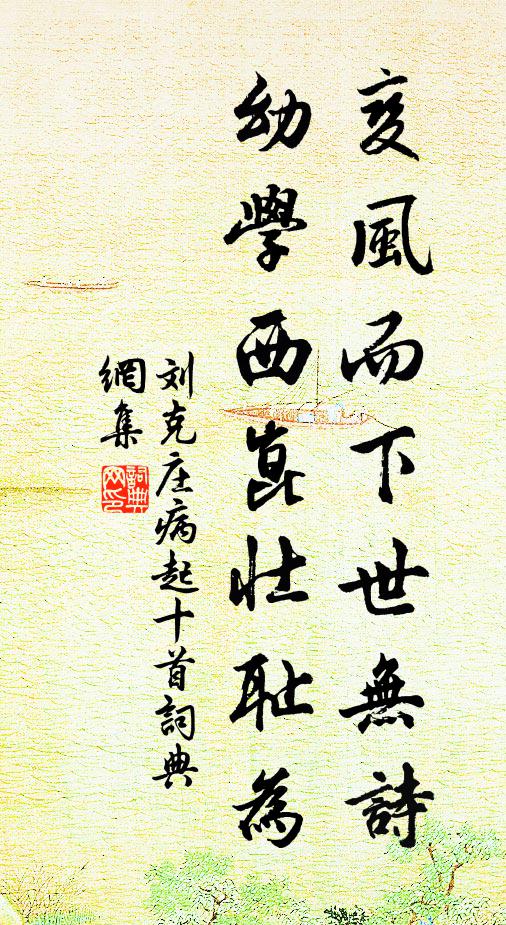 变風而下世無詩
幼學西崑壯耻為
刘克庄病起十首詞典
網集
詞典
网印